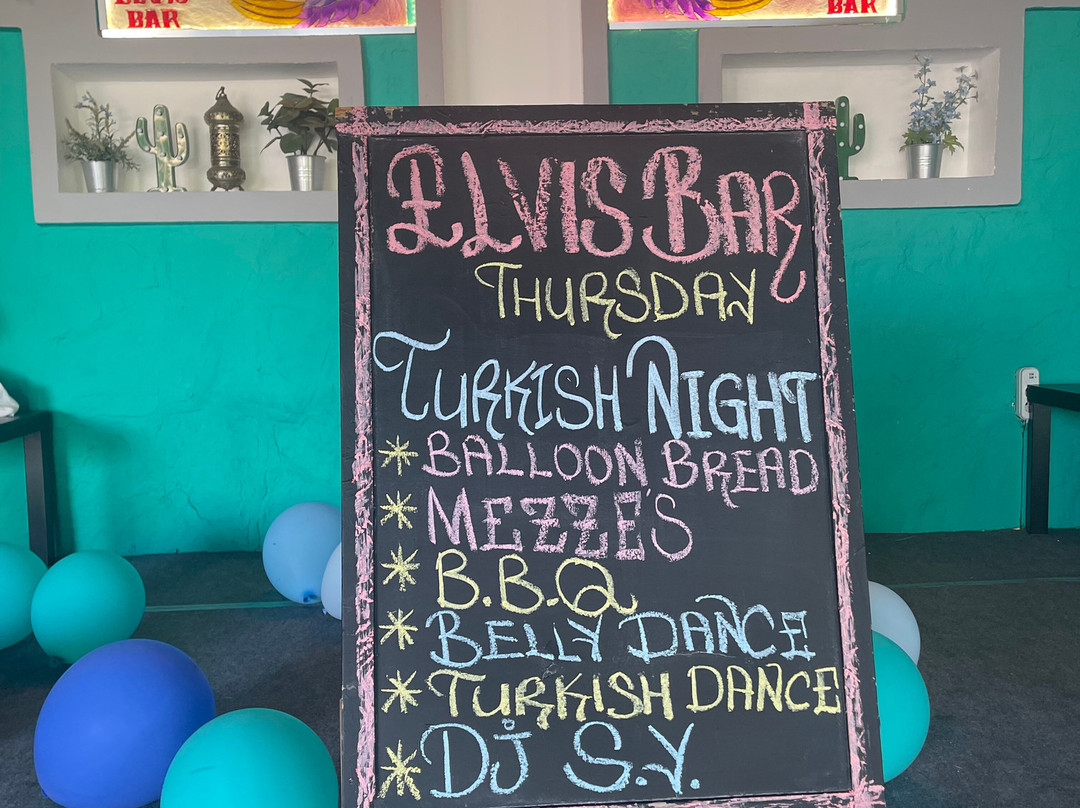 ELVIS
BAR
BAR
ELVIS BAR
THURSDAY
TURKISH NIGHT
* BALLOON BREAD
* MEZZE'S
* B.B.Q
* BELLY DANCE
* TURKISH DANCE
* DJ S.Y.